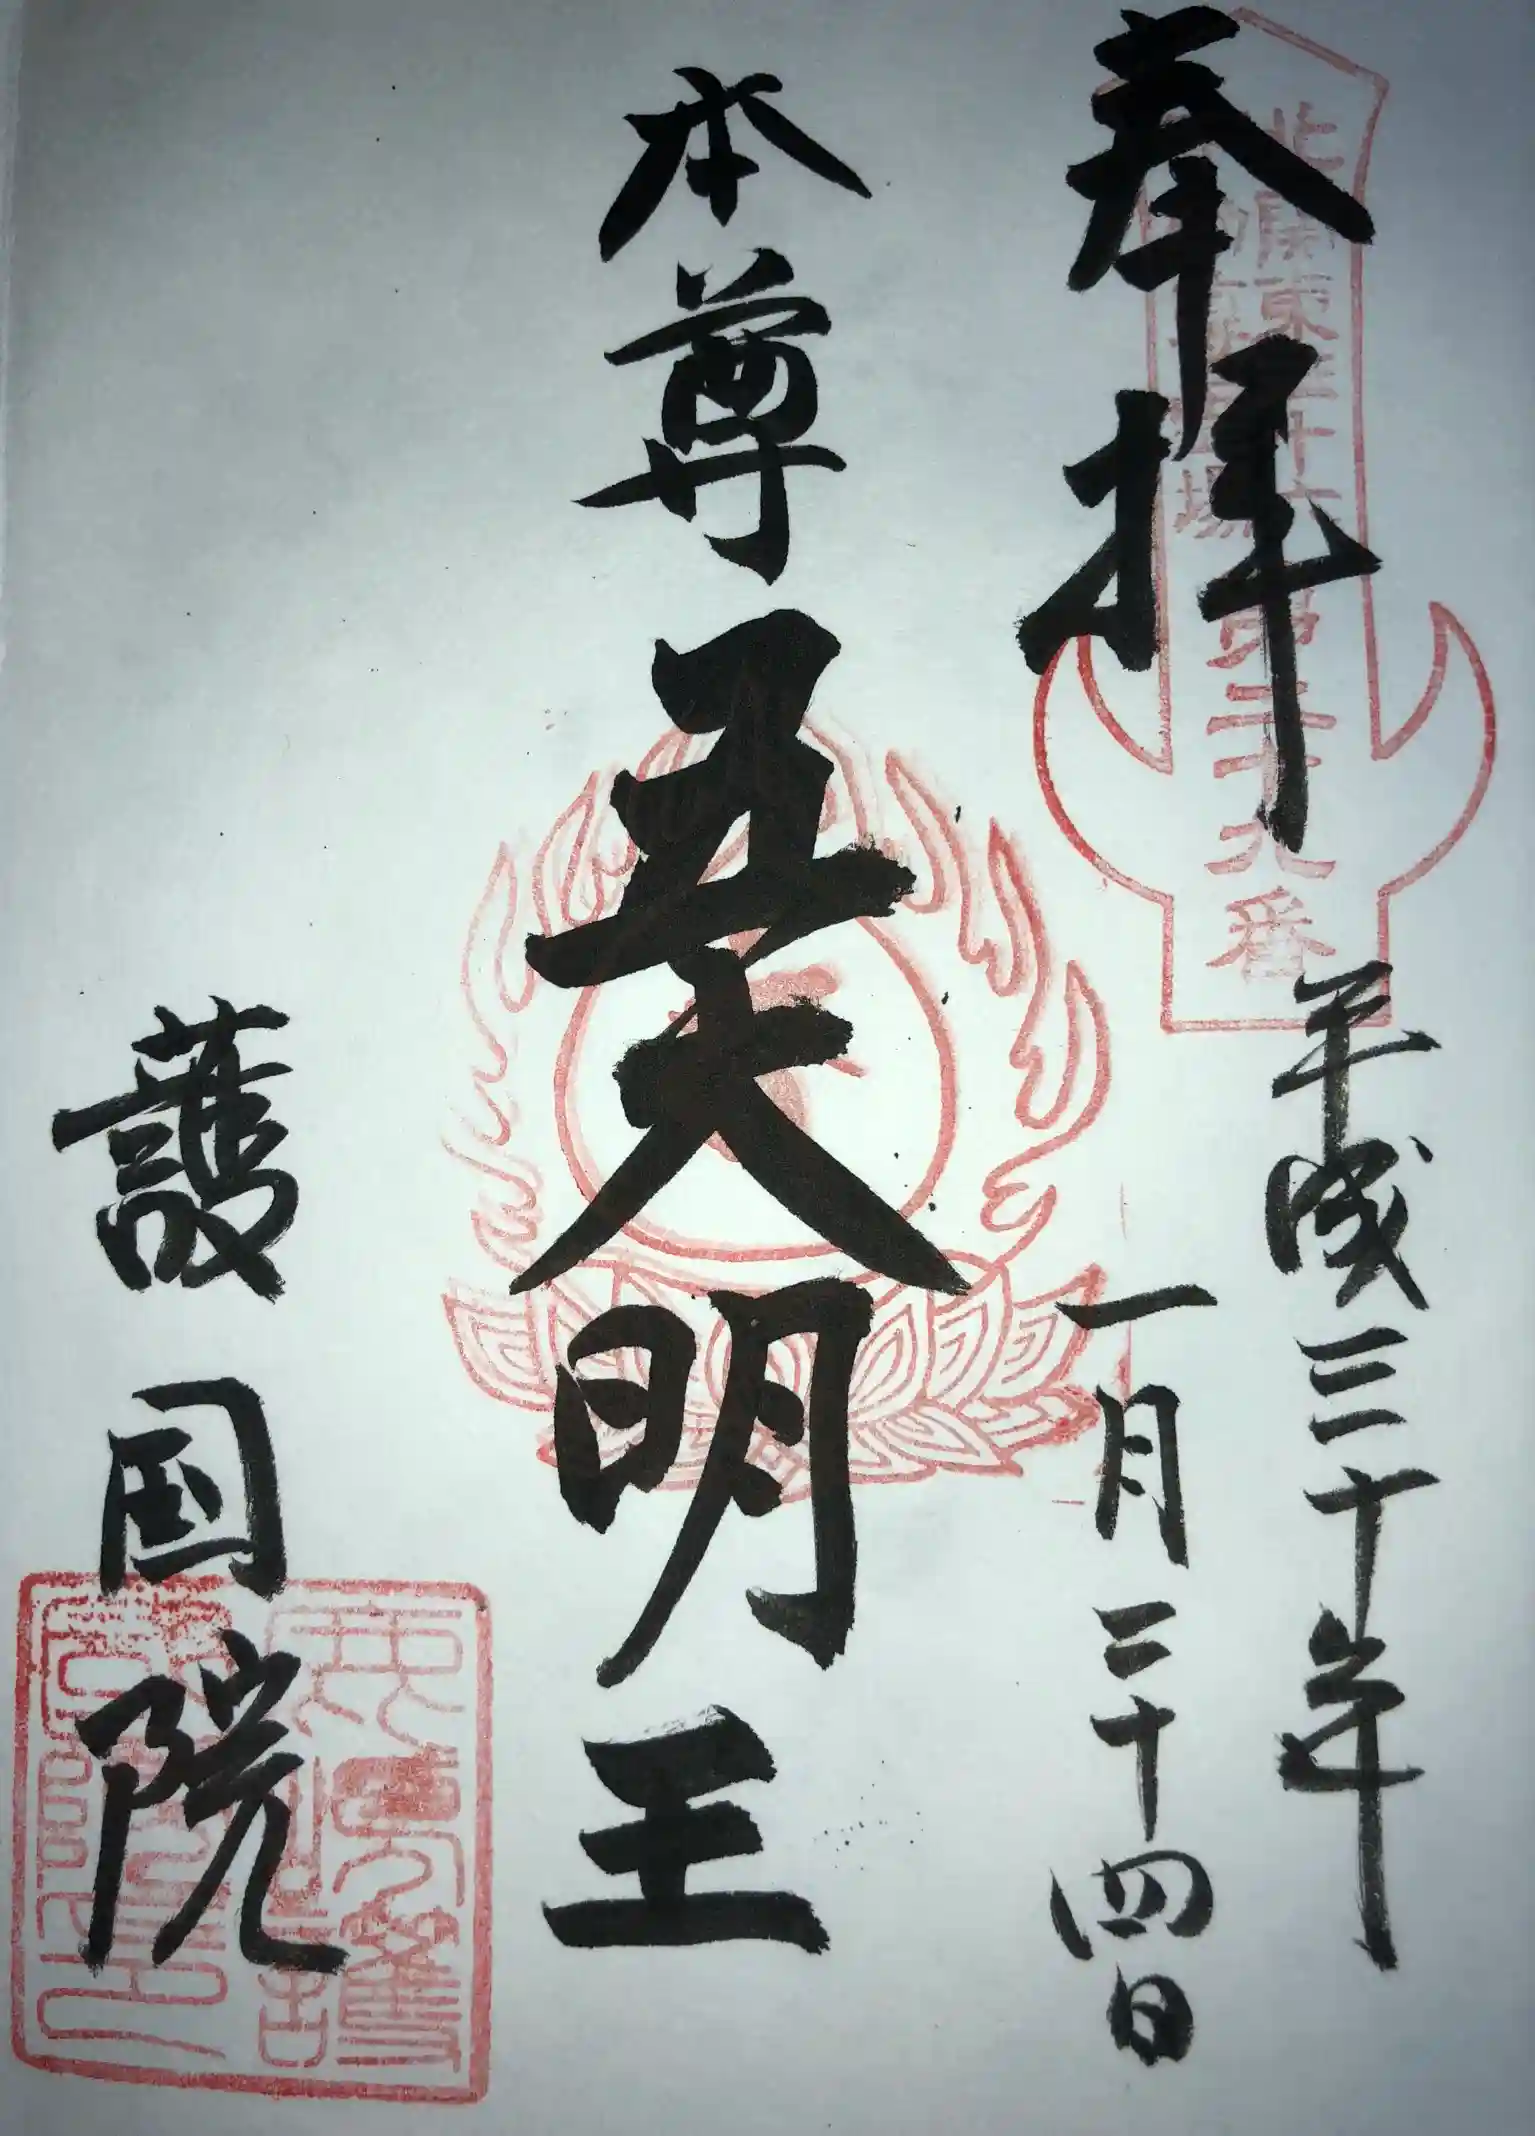 奉拝
北関東三十六
不動尊霊場
第二十九番
平成三十年
一月二十四日
本尊五大明王
護国院